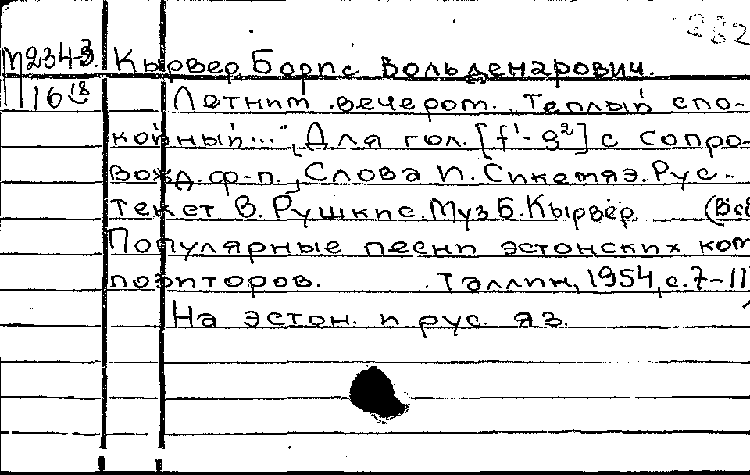 282
П234-3. Кырвер Борис Вольдемарович.
П 16 Летним вечером. "Теплый спо-
койный...", Для гол. [f¹-g²] с сопро-
вожд. ф-п., Слова И. Сикемяэ. Рус.
текст В. Рушкис. Муз Б. Кырвер (Вкл
Популярные песни эстонских ком
позиторов. Таллин, 1954, с. 7-11
На эстон. и рус. яз.